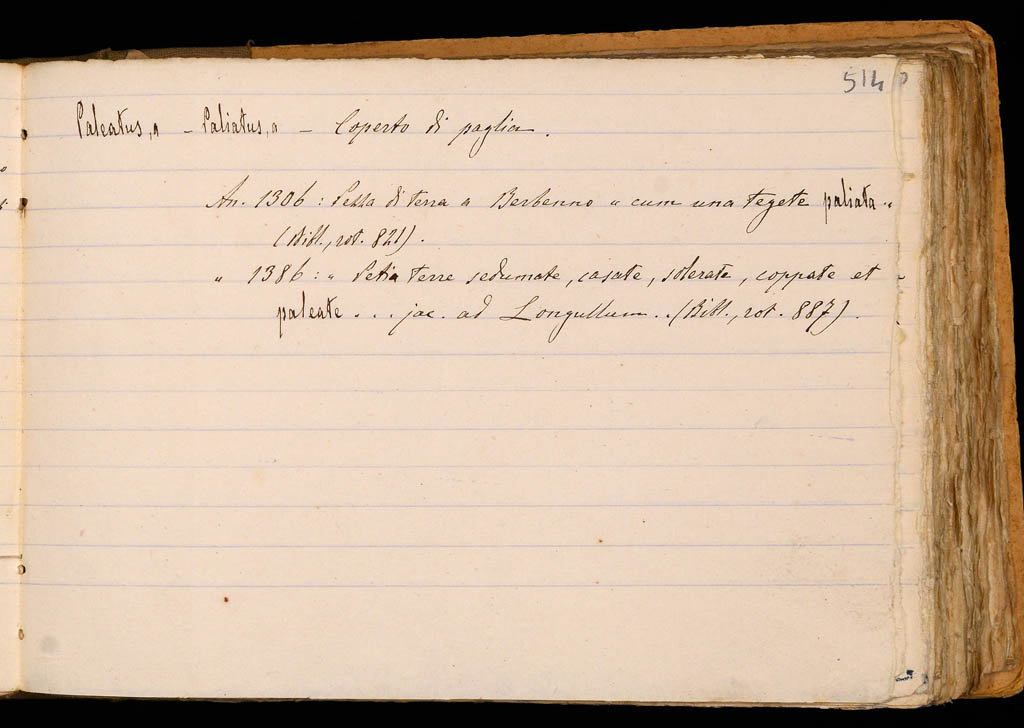 514
Paleatus, a - Paliatus, a - Coperto di paglia.
An. 1306: Pezza di terra a Berbenno " cum una tegete paliata "
(Bibl., rot. 821).
" 1386: " Petia terre sedumate, casate, solerate, coppate et
paleate ... jac. ad Longullum .. (Bibl., rot. 887).